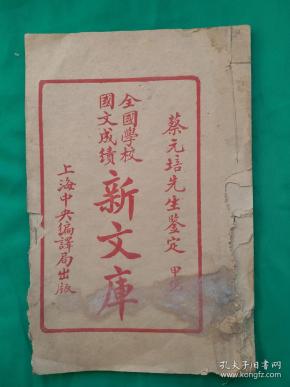 蔡元培先生鉴定
甲
全國學校
國文成績
新文庫
上海中央編譯局出版
孔夫子旧书网